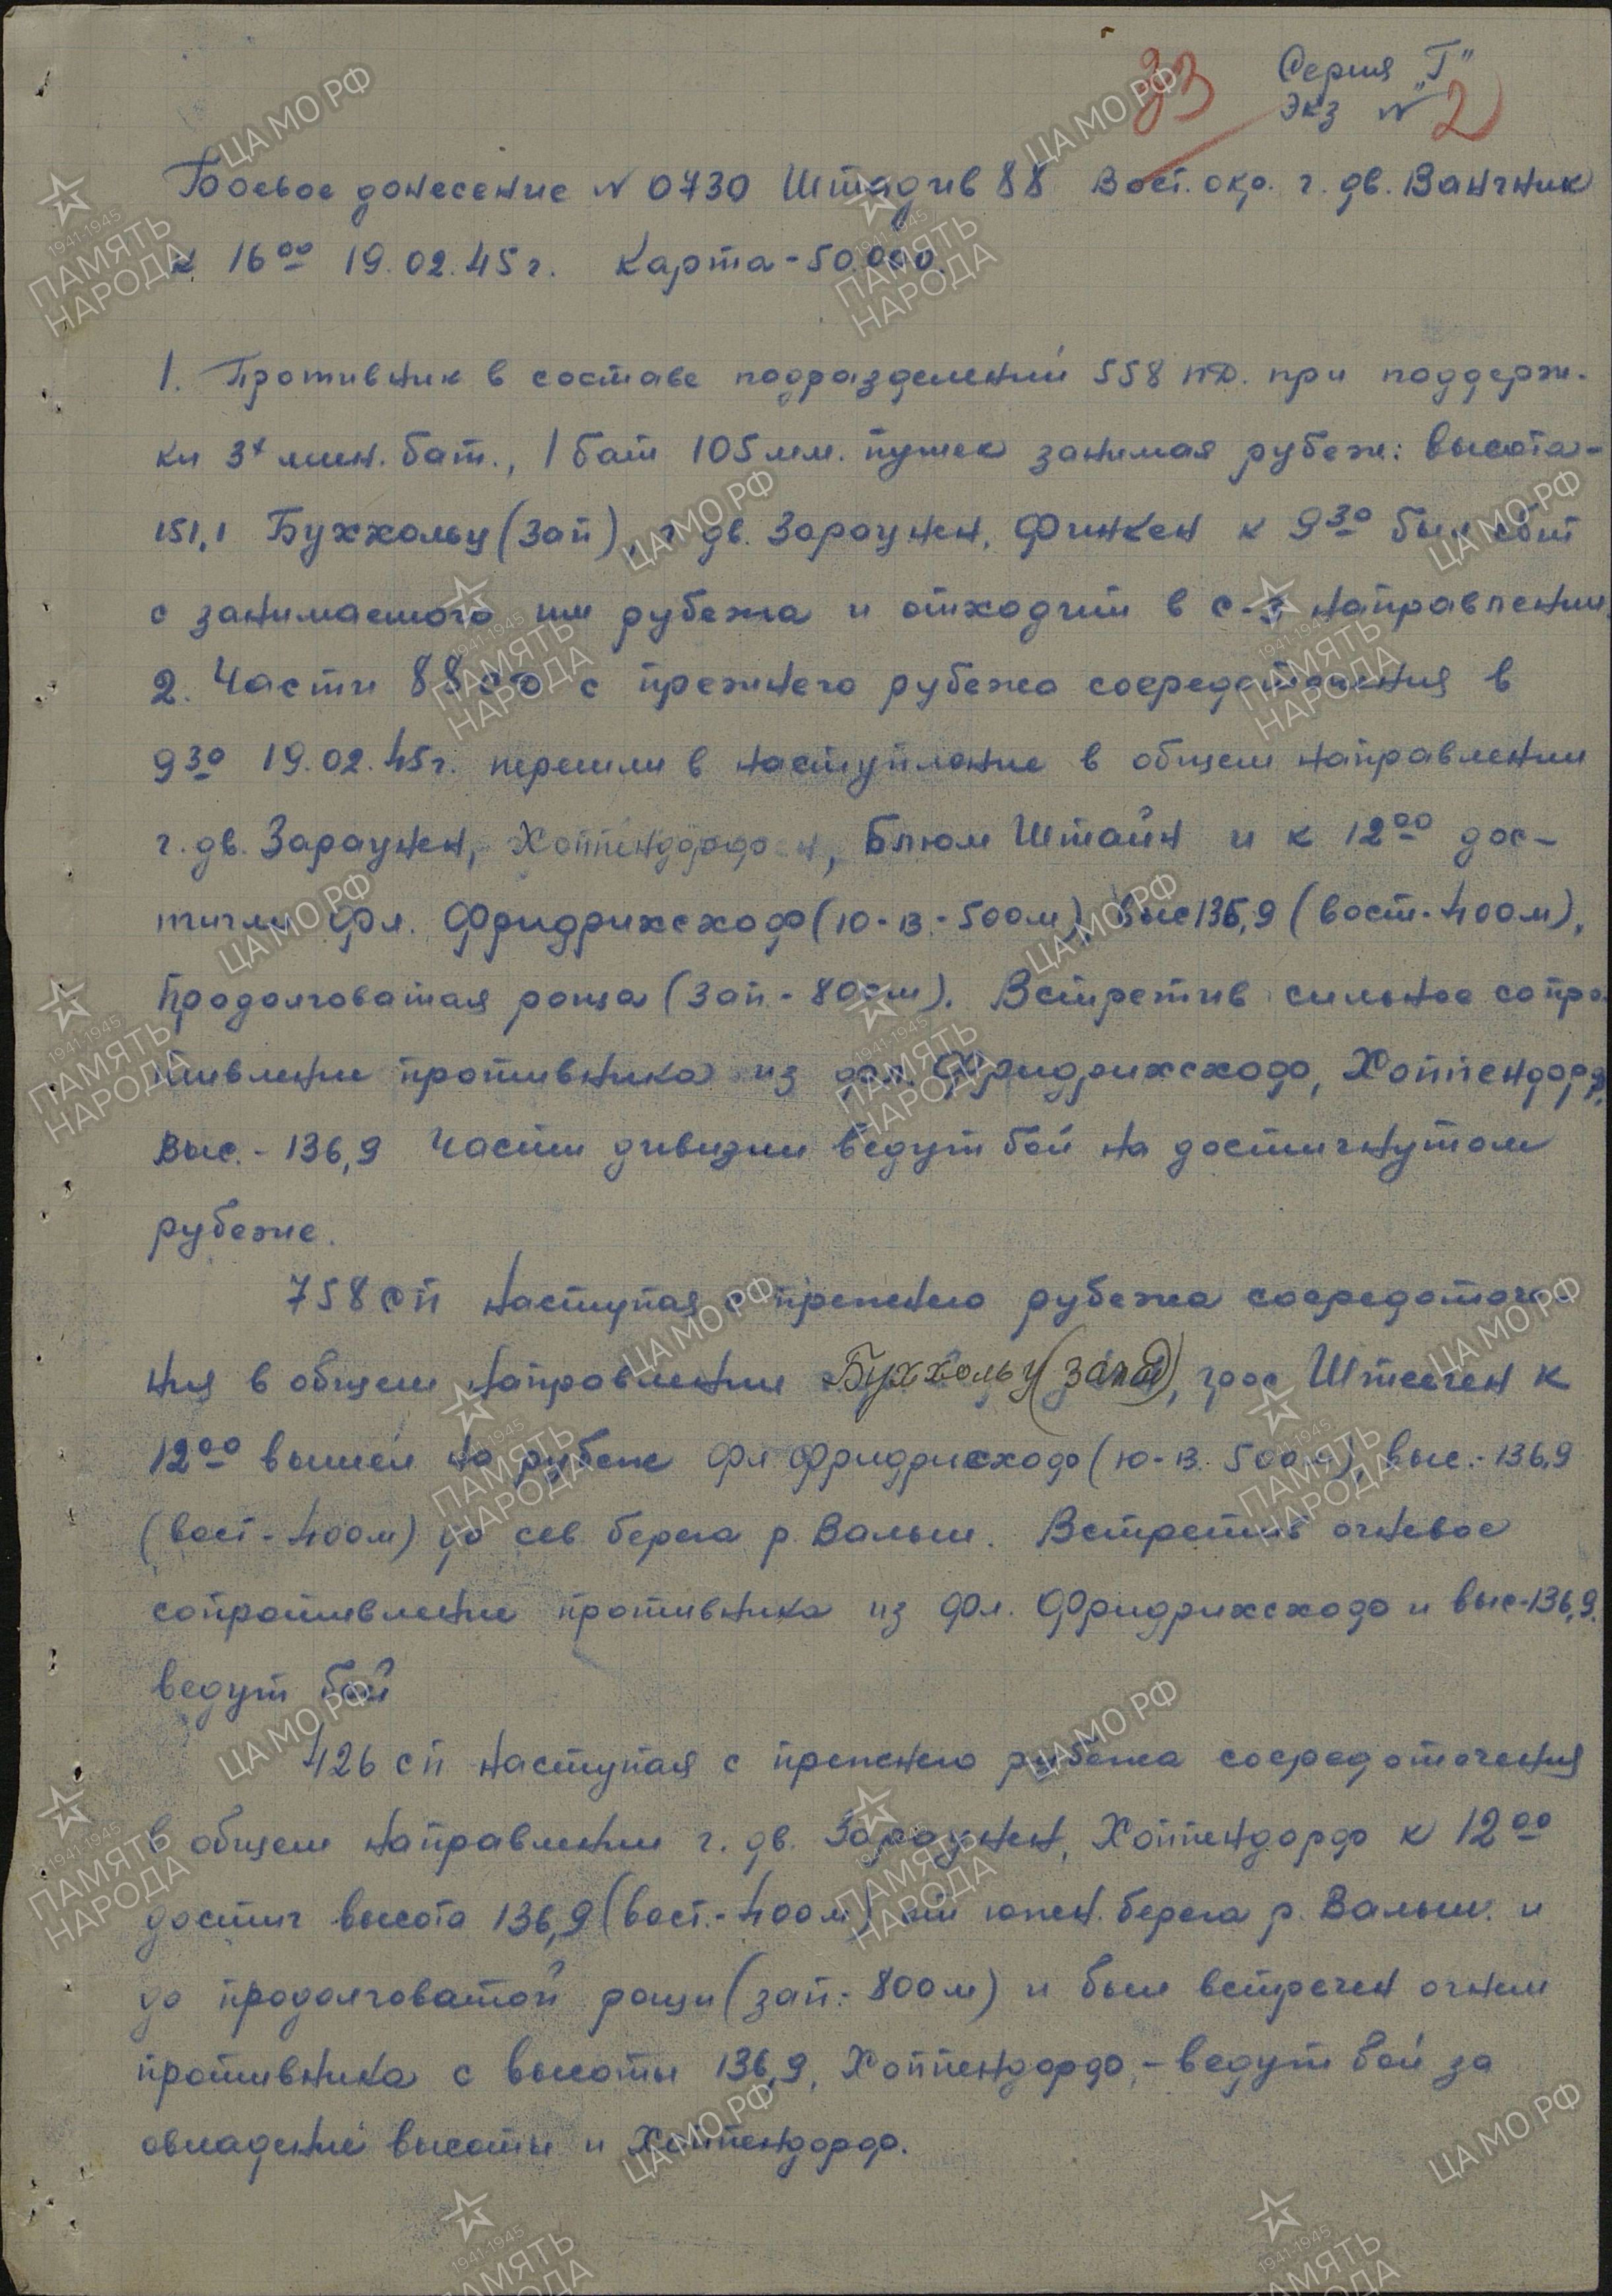 33
Серия "Г"
Экз № 2
Боевое донесение № 0730 Штадив 88 Вост. окр. г. дв. Ванчник
к 16 00 19.02.45 г. Карта - 50.000.
1. Противник в составе подразделений 558 пд. при поддерж-
ки 3х мин. бат., 1 бат 105 мм. пушек занимая рубеж: высота-
151,1 Буххольц (Зап), г. дв. Зараунен, Финкен к 9 30 был сбит
с занимаемого им рубежа и отходит в с-з направлении.
2. Части 88 сд с прежнего рубежа сосредоточения в
9 30 19.02.45 г. перешли в наступление в общем направлении
г. дв. Зараунен, Хоппендорф, Блюм Штайн и к 12 00 дос-
тигли фл. Фридрихсхоф (ю-в.-500м), выс 136,9 (вост-400м),
продолговатая роща (Зап.-800м). Встретив сильное сопро-
тивление противника из фл. Фридрихсхоф, Хоппендорф,
выс.-136,9 части дивизии ведут бой на достигнутом
рубеже.
758 сп наступая с прежнего рубежа сосредоточе-
ния в общем направлении Буххольц (запад), грос Штееген к
12 00 вышел на рубеж фл Фридрисхоф (ю-в. 500м), выс.-136,9
(вост-400м) до сев. берега р. Вальш. Встретив огневое
сопротивление противника из фл. Фридрихсхоф и выс-136,9.
ведут бой
426 сп наступая с прежнего рубежа сосредоточения
в общем направлении г. дв. Зараунен, Хоппендорф к 12 00
достиг высота 136,9 (вост.-400м) от южн. берега р. Вальш. и
до продолговатой рощи (зап.-800м) и был встречен огнем
противника с высоты 136,9, Хоппендорф,- ведут бой за
овладение высоты и Хоппендорф.
ЦА МО РФ
1941-1945
ПАМЯТЬ
НАРОДА